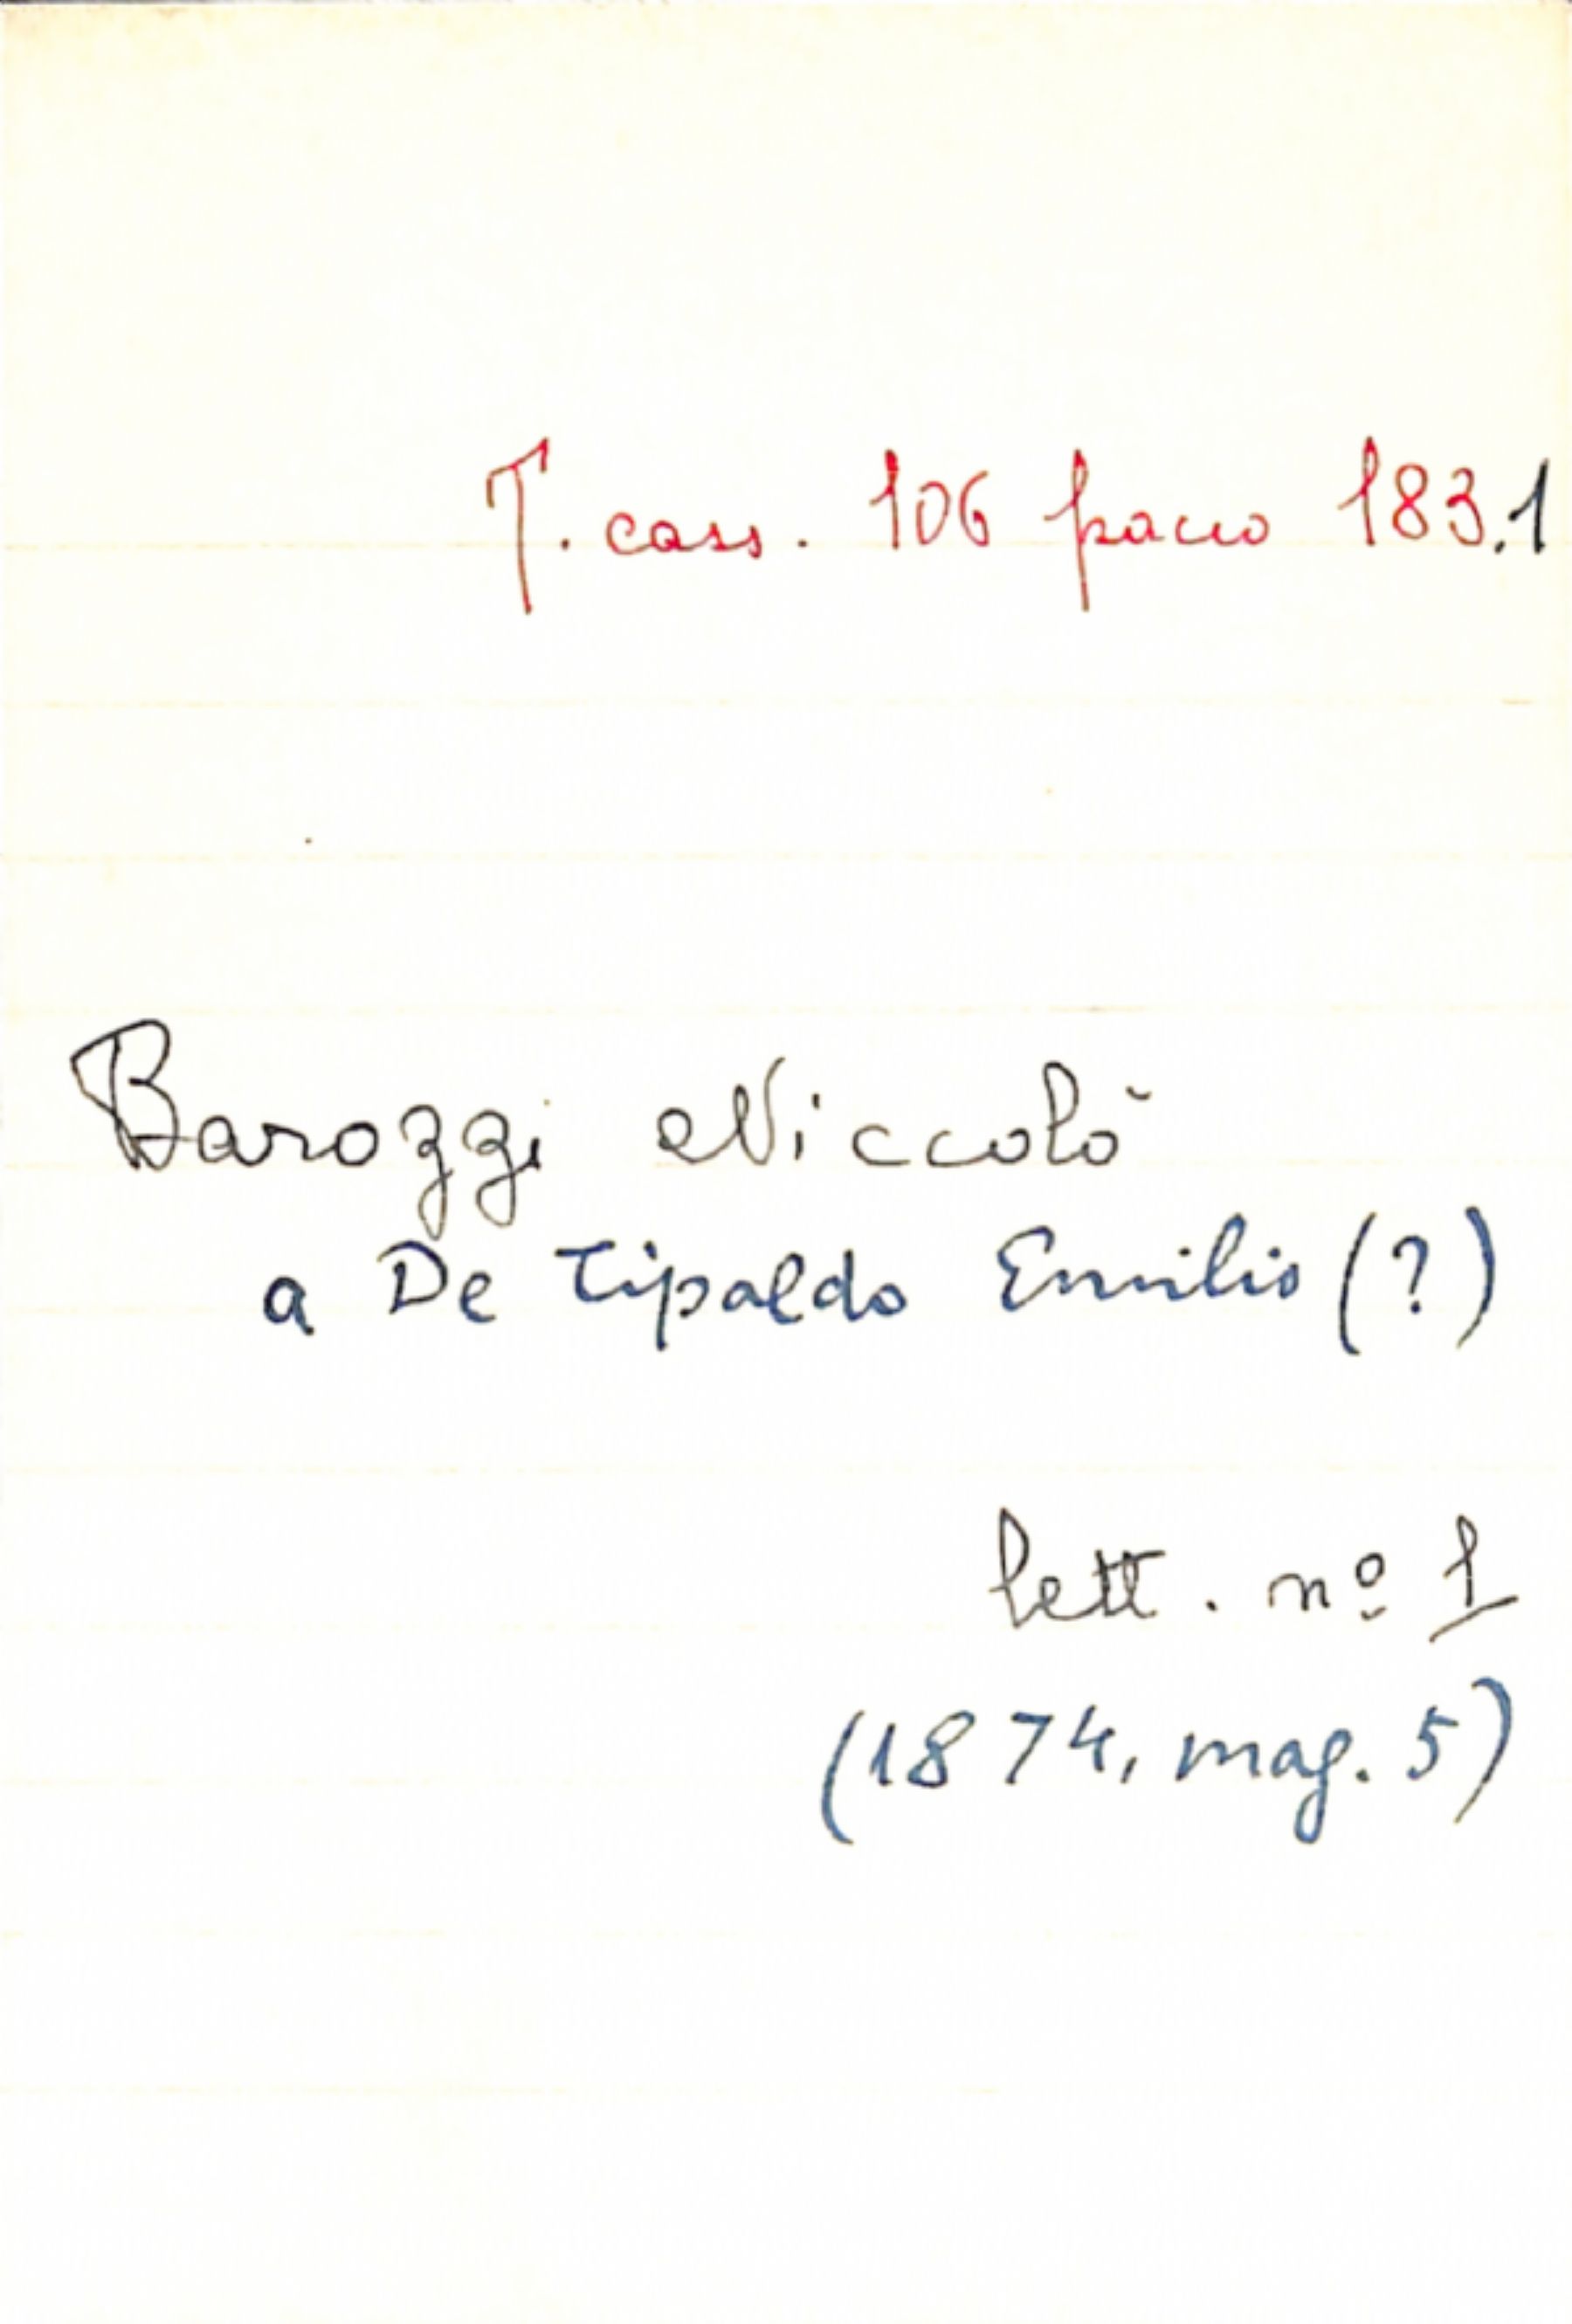 T. cass. 106 pacco 183.1
Barozzi Niccolò
a De Tipaldo Emilio (?)
lett. nº 1
(1874, mag. 5)